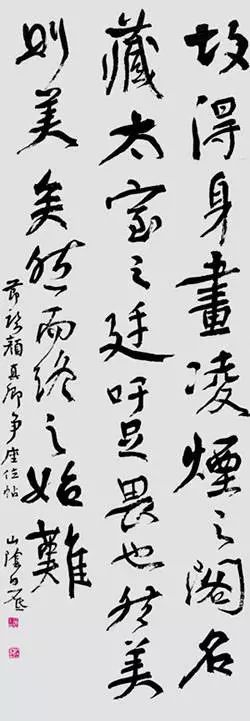 故得身畫凌煙之閣名
藏太室之廷吁足畏也然美
則美矣然而終之始難
顏真卿争座位帖
山陰